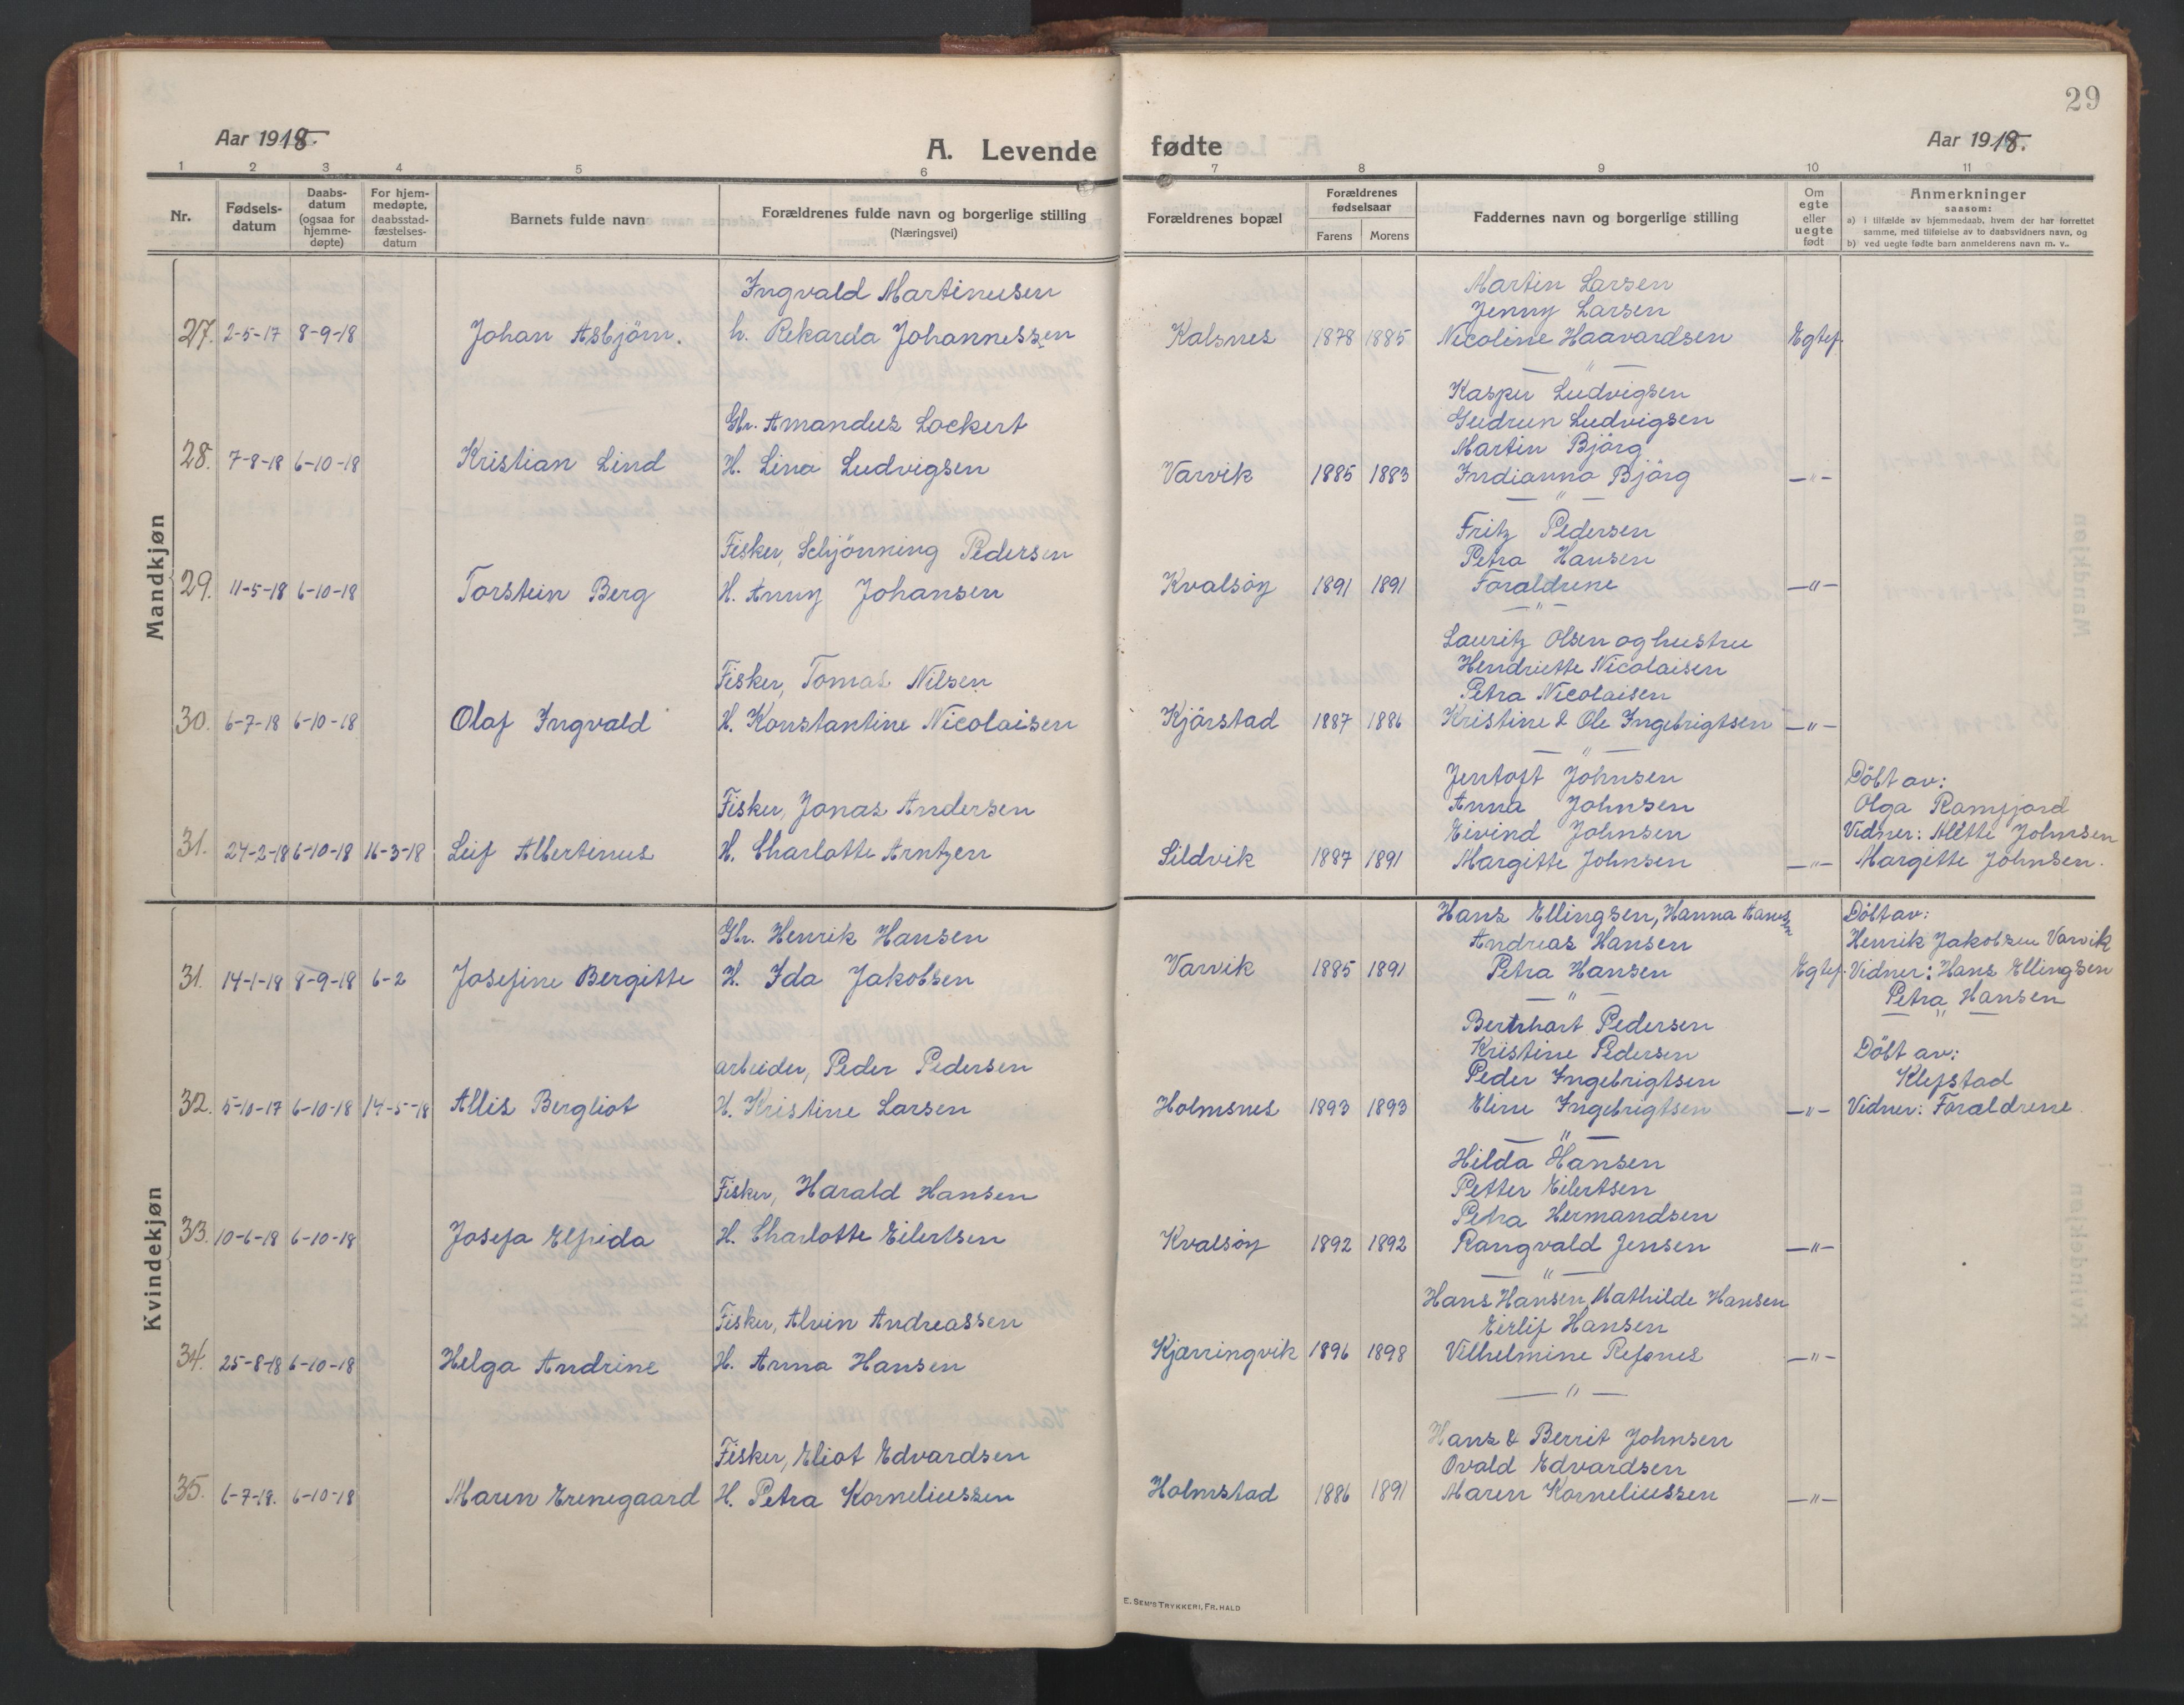 29
Aar 1918.
A. Levende fødte
Aar 1918.
1 2 3 4 5 6 7 8 9 10 11
Nr.
Fødsels-
datum
Daabs-
datum
(ogsaa for
hjemme-
døpte)
For hjem-
medøpte,
daabsstad-
fæstelses-
datum
Barnets fulde navn
Forældrenes fulde navn og borgerlige stilling
(Næringsvei)
Forældrenes bopæl
Forældrenes
fødselsaar
Farens Morens
Faddernes navn og borgerlige stilling
Om
egte
eller
uegte
født
Anmerkninger
saasom:
a) i tilfælde av hjemmedaab, hvem der har forrettet
samme, med tilføielse av to daabsvidners navn, og
b) ved uegte fødte barn anmelderens navn m. v..
Mandkjøn
Ingvald Martinusen Martin Larsen
Jenny Larsen
27. 2-5-17 8-9-18 Johan Asbjörn. h. Rekarda Johannessen Kalsnes 1878 1885 Nicoline Haavardsen Egtef.
— " —
Kasper Ludvigsen
Gbr. Amandus Lockert Gudrun Ludvigsen
Martin Bjørg
28. 7-8-18 6-10-18 Kristian Lind H. Lina Ludvigsen Varvik 1885 1883 Indianna Bjørg —"—
— " —
Fritz Pedersen
Fisker, Schjönning Pedersen Petra Hansen
29. 11-5-18 6-10-18 Torstein Berg H. Anny Johansen Kvalsöy 1891 1891 Foraldrene —"—
— " —
Lauritz Olsen og hustru
Hendriette Nicolaisen
Fisker, Tomas Nilsen Petra Nicolaisen
30. 6-7-18 6-10-18 Olaf Ingvald H. Konstantine Nicolaisen Kjörstad 1887 1886 Kristine & Ole Ingebrigtsen —"—
— " —
Jentoft Johnsen Döbt av:
Fisker, Jonas Andersen Anna Johnsen Olga Ramfjord
Eivind Johnsen Vidner: Alette Johnsen
31. 24-2-18 6-10-18 16-3-18 Leif Albertinus H. Charlotte Arntzen Sildvik 1887 1891 Margitte Johnsen —"— Margitte Johnsen.
Kvindekjøn
Hans Ellingsen, Hanna Hansen Döbt av:
Gbr. Henrik Hansen Andreas Hansen Henrik Jakobsen Varvik
31. 14-1-18 8-9-18 6-2 Josefine Bergitte H. Ida Jakobsen Varvik 1885 1891 Petra Hansen Egtef. Vidner: Hans Ellingsen
— " — Petra Hansen
Bernhart Pedersen — " —
Kristine Pedersen Döbt av:
arbeider, Peder Pedersen Peder Ingebrigtsen Klefstad
32. 5-10-17 6-10-18 14-5-18 Allis Bergliot H. Kristine Larsen Holmsnes 1893 1893 Eline Ingebrigtsen —"— Vidner: Foraldrene
— " —
Hilda Hansen
Fisker, Harald Hansen Petter Eilertsen
Petra Hermandsen
33. 10-6-18 6-10-18 Josefa Elfrida H. Charlotte Eilertsen Kvalsöy 1892 1892 Rangvald Jensen —"—
— " —
Hans Hansen, Mathilde Hansen
Fisker, Alvin Andreassen Eirlif Hansen
34. 25-8-18 6-10-18 Helga Andrine H. Anna Hansen Kjærringvik 1896 1898 Vilhelmine Refsnes —"—
— " —
Hans & Berrit Johnsen
Fisker, Eliot Edvardsen Ovald Edvardsen
35. 6-7-18. 6-10-18 Maren Erenegaard H. Petra Korneliussen Holmstad 1886 1891 Maren Korneliussen —"—
E. SEM'S TRYKKERI, FR. HALD